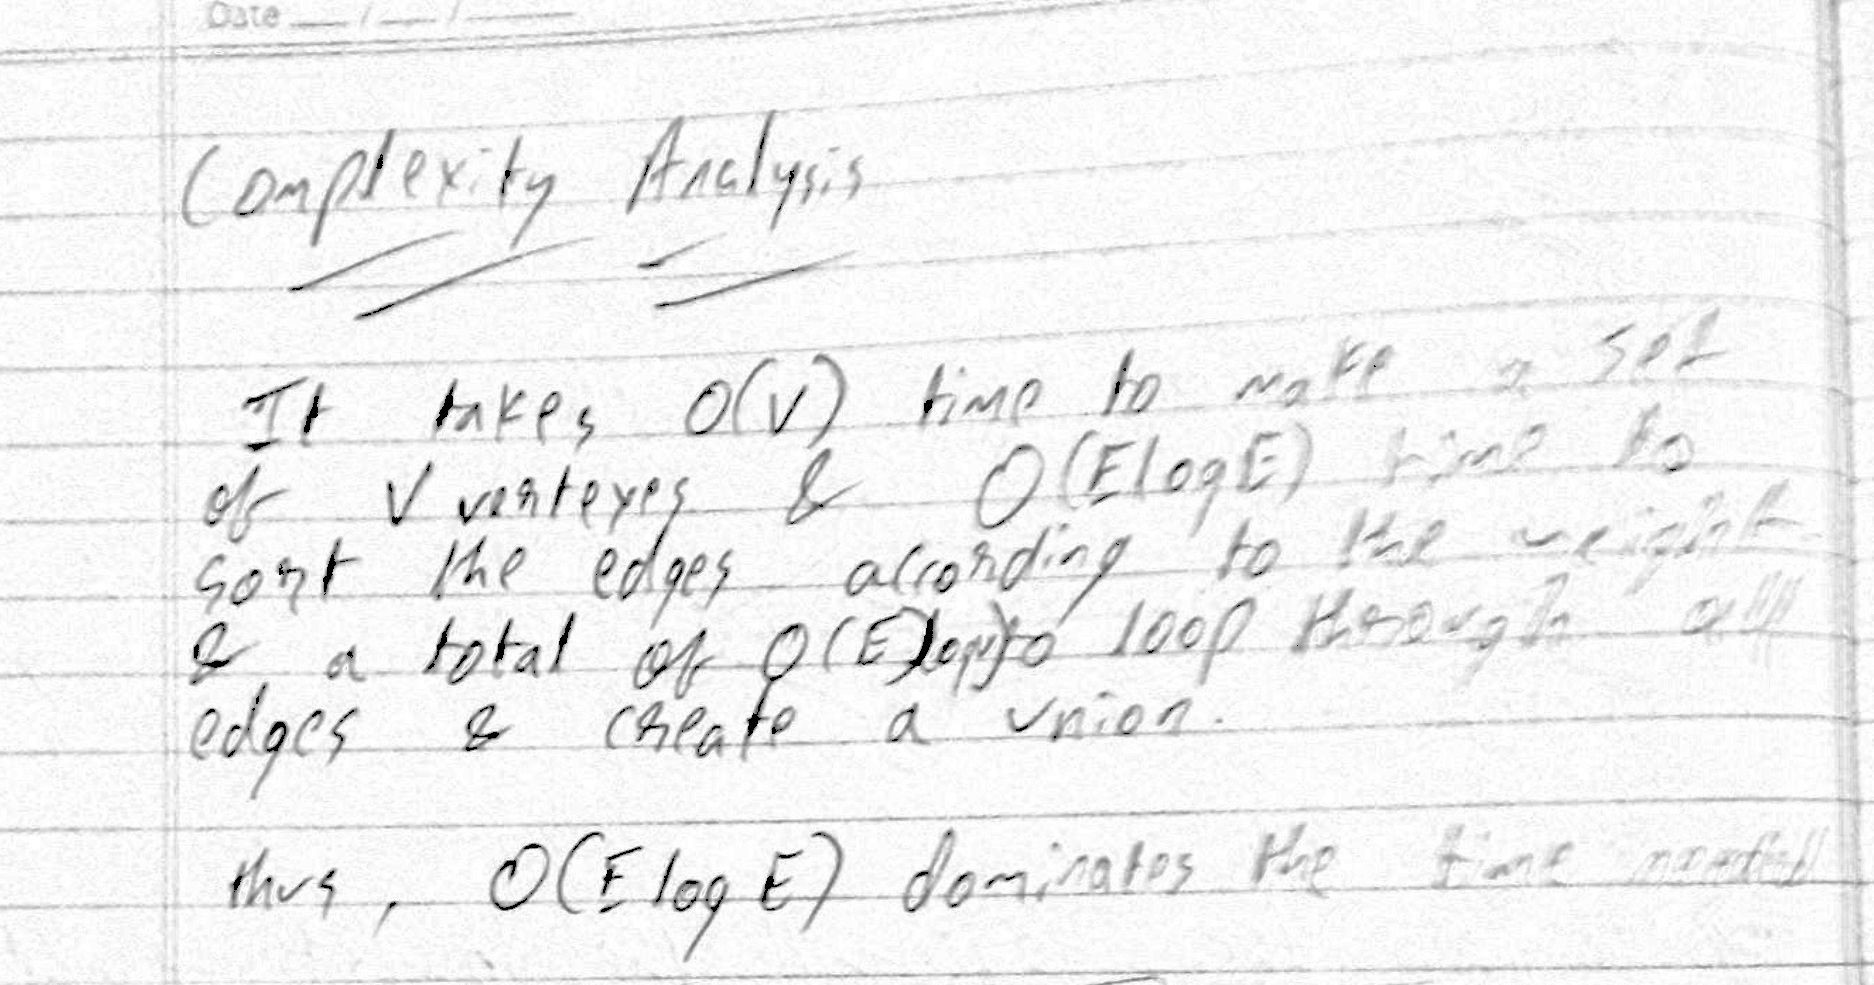 Date __/__/____
Complexity Analysis
It takes O(V) time to make a set
of V vertexes & O(E log E) time to
sort the edges according to the weight
& a total of O(E) to loop through all
edges & create a union.
thus, O(E log E) dominates the time needed